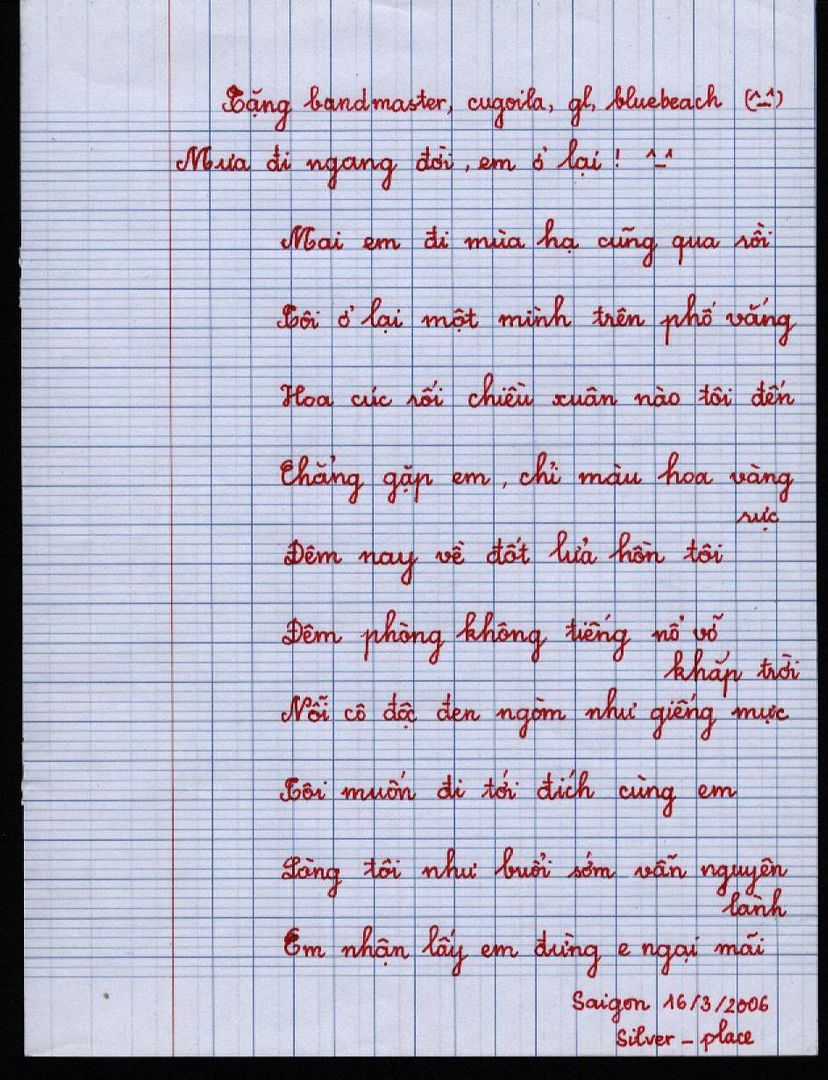 Tặng bandmaster, cugoila, gl, bluebeach (^_^)
Mưa đi ngang đời, em ở lại ! ^_^
Mai em đi mùa hạ cũng qua rồi
Tôi ở lại một mình trên phố vắng
Hoa cúc rối chiều xuân nào tôi đến
Chẳng gặp em, chỉ màu hoa vàng
rực
Đêm nay về đốt lửa hồn tôi
Đêm phòng không tiếng nổ vỡ
khắp trời
Nỗi cô độc đen ngòm như giếng mực
Tôi muốn đi tới đích cùng em
Lòng tôi như buổi sớm vẫn nguyên
lành
Em nhận lấy em đừng e ngại mãi
Saigon 16/3/2006
Silver - place